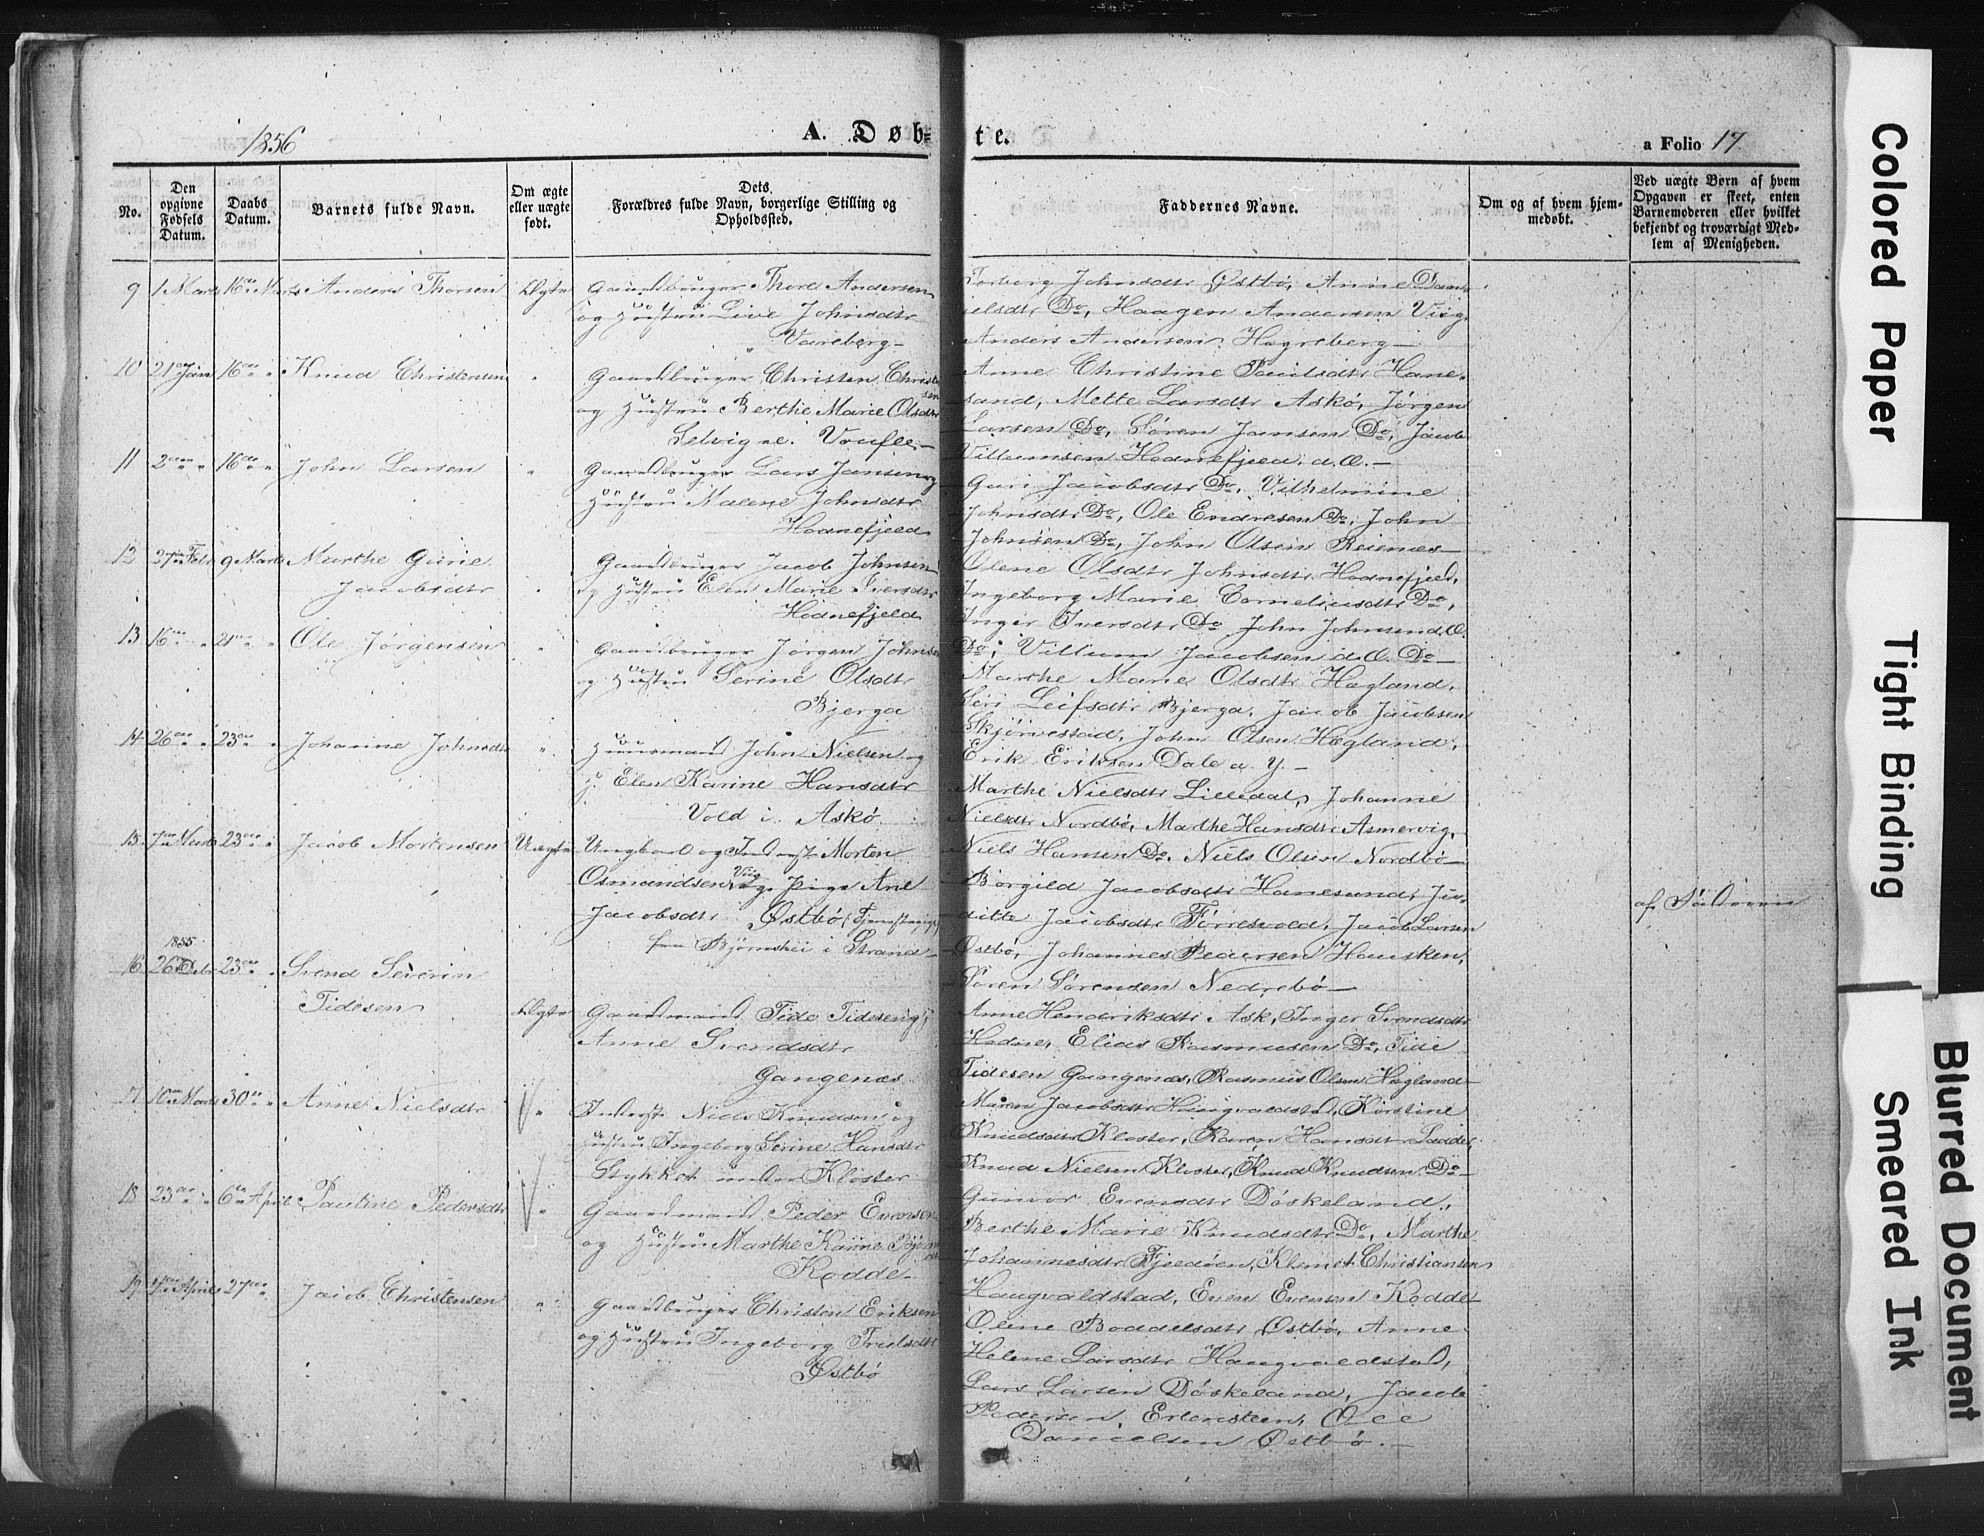 1856
A. Døb=
te.
a Folio 17
No.
Den opgivne Fødsels Datum.
Daabs Datum.
Barnets fulde Navn.
Om ægte eller uægte født.
Dets Forældres fulde Navn, borgerlige Stilling og Opholdssted.
Faddernes Navne.
Om og af hvem hjemmedøbt.
Ved uægte Børn af hvem Opgaven er skeet, enten Barnemoderen eller hvilket bekjendt og troværdigt Medlem af Menigheden.
9 1 Marts 16de Marts Anders Thorsen Ægte Gaardbruger Thore Andersen
og Hustru Live Johnsdtr
Vareberg
Torborg Johnsdtr Østbø, Anne Dan-
ielsdtr Do, Haagen Andersen Viig,
Anders Andersen Hegreberg
10 21de Jan 16de " Knud Christensen " Gaardbruger Christen Christensen
og Hustru Berthe Marie Olsdtr
Selvig
Anne Christine Paulsdtr Hane-
sund, Mette Larsdtr Askø, Jørgen
Larsen Do, Søren Jansen Do, Jacob
Villumsen Hodnefjeld
11 2den " 16de " John Larsen " Gaardbruger Lars Jansen og
Hustru Malene Johnsdtr
Hodnefjeld
Guri Jacobsdtr Do, Vilhelmine
Johnsdtr Do, Ole Endresen Do, John
Johnsen Do, John Olsen Reienæs
12 27de Febr 9 Marts Marthe Gurie
Jacobsdtr " Gaardbruger Jacob Johnsen
og Hustru Elen Marie Iversdtr
Hodnefjeld
Olene Olsdtr Johnsdtr Hodnefjeld,
Ingeborg Marie Corneliusdtr Do,
Inger Iversdtr Do, John Johnsen d.Æ.
Do, Villum Jacobsen d.Æ. Do
13 16de " 21de " Ole Jørgensen " Gaardbruger Jørgen Johnsen
og Hustru Serine Olsdtr
Bjerga
Marthe Marie Olsdtr Hegland,
Siri Leifsdtr Bjerga, Jacob Jacobsen
Skjørvestad, John Olsen Hegland,
Erik Eriksen Dale d. y.
14 26de " 23de " Johanne Johnsdtr " Huusmand John Nielsen og
H. Elen Karine Hansdtr
Vold i Askø
Marthe Nielsdtr Lilledal, Johanne
Nielsdtr Nordbø, Marthe Hansdtr Asmervig,
Niels Hansen Do, Niels Olsen Nordbø
15 7de Marts 23de " Jacob Mortensen Uægte Ungkarl og Inderst Morten
Osmundsen Viig og Pige Ane
Jacobsdtr Østbø (Tjenestepige
fra Bjørnshei i Strand
Borgild Jacobsdtr Hanesund, Ju-
ditte Jacobsdtr Førresvold, Jacob Larsen
Østbø, Johannes Pedersen Hausken,
Søren Sørensen Nedrebø
af Faderen
1855
16 26 Debr 23de " Svend Severin
Tidesen Ægte Gaardmand Tide Tidesen og H.
Anne Svendsdtr
Gangenæs
Anne Hendriksdtr Ask, Inger Svendsdtr
Hodne, Elias Rasmussen Do, Tide
Tidesen Gangenæs, Rasmus Olsen Hegland
17 10de Marts 30de " Anne Nielsdtr " Inderst Niels Knudsen og
Hustru Ingeborg Serine Hansdtr
Stykket under Kloster
Maren Jacobsdtr Haugvaldstad, Kirstine
Knudsdtr Kloster, Karen Hansdtr
Knud Nielsen Kloster, Knud Knudsen Do
18 23de " 6te April Pauline Pedersdtr " Gaardmand Peder Evensen
og Hustru Marthe Karine
Kodde
Gunvor Evensdtr Døskeland,
Berthe Marie Knudsdtr Do, Marthe
Johannesdtr Fjeldøen, Klemet Christiansen
Haugvaldstad, Even Evensen Kodde
19 April 27de " Jacob Christensen " Gaardbruger Christen Eriksen
og Hustru Ingeborg
Østbø
Oline Boddelsdtr Østbø, Anne
Helene Larsdtr Haugvaldstad,
Lars Larsen Døskeland, Jacob
Pedersen, Erlensteen, Ole
Danielsen Østbø.
Colored Paper
Tight Binding
Blurred Document
Smeared Ink